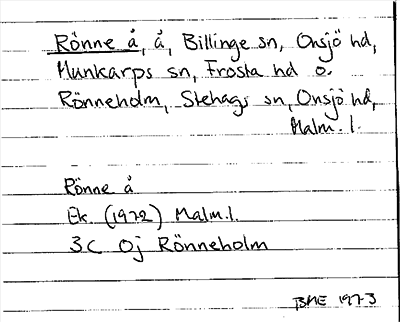 Rönne å, å, Billinge sn, Onsjö hd,
Munkarps sn, Frosta hd o.
Rönneholm, Stehags sn, Onsjö hd,
Malm. l.
Rönne å
Ek. (1972) Malm. l.
3C 0j Rönneholm
BME 1973